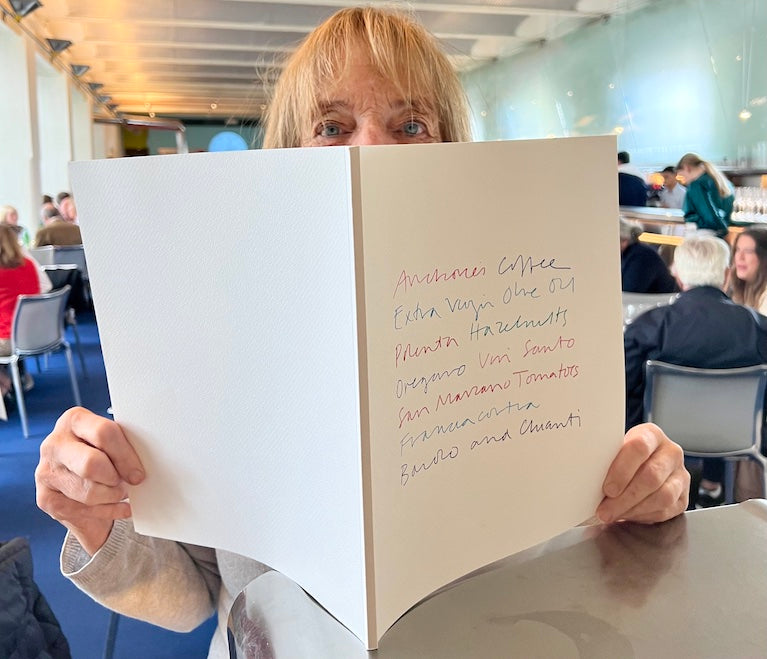 Anchovies Coffee
Extra Virgin Olive Oil
Polenta Hazelnuts
Oregano Vin Santo
San Marzano Tomatoes
Franciacorta
Barolo and Chianti